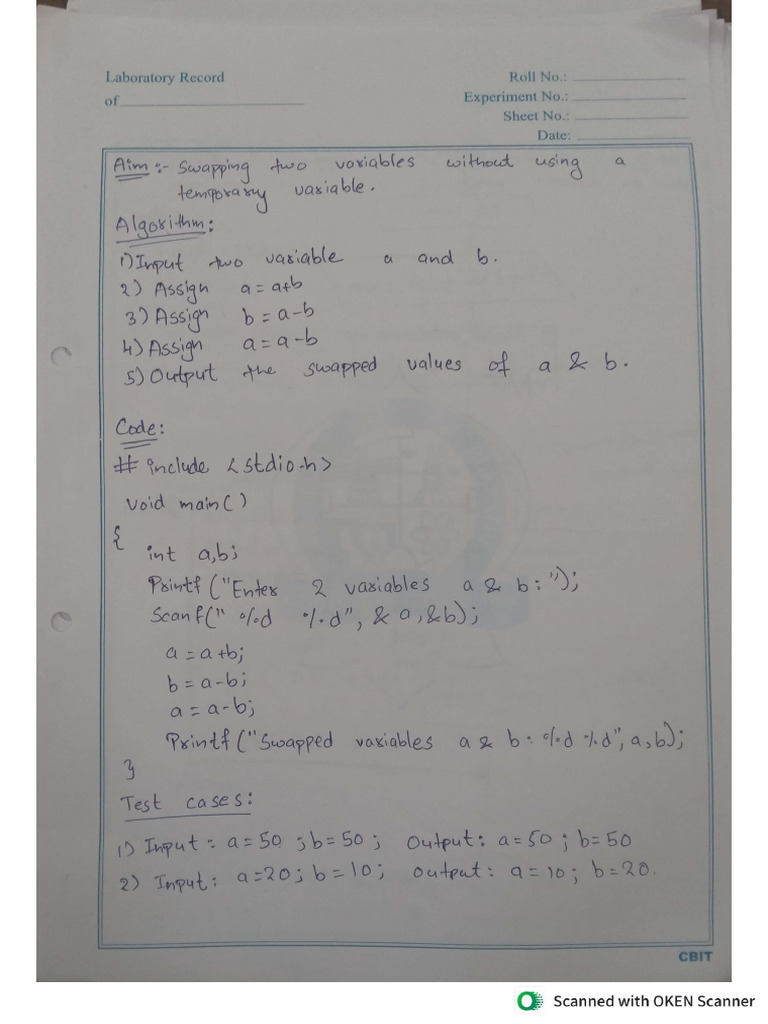 Laboratory Record
of
Roll No.:
Experiment No.:
Sheet No.:
Date:
Aim :- Swapping two variables without using a
temporary variable.
Algorithm:
1) Input two variable a and b.
2) Assign a = a+b
3) Assign b = a-b
4) Assign a = a-b
5) Output the swapped values of a & b.
Code:
# include <stdio.h>
void main()
{
int a,b;
Printf ("Enter 2 variables a & b: ");
Scanf(" %d %d", & a, &b);
a = a+b;
b = a-b;
a = a-b;
Printf("Swapped variables a & b: %d %d", a,b);
}
Test cases:
1) Input: a=50 ; b=50 ; Output: a=50 ; b=50
2) Input: a=20; b=10; output: a=10; b=20.
CBIT
Scanned with OKEN Scanner